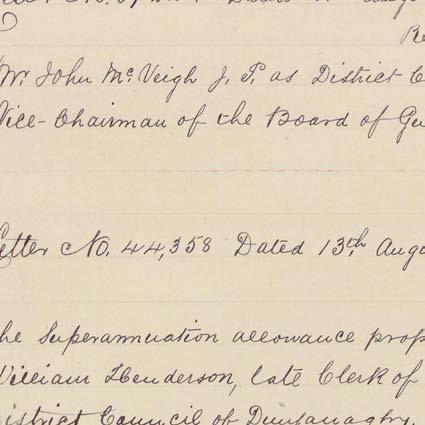 No.
Re
Mr. John McVeigh J. P. as District C
Vice-Chairman of the Board of Gu
Letter No. 44,358 Dated 13th Augu
he Superannuation allowance prop
William Henderson, late Clerk of
District Council of Dungannon